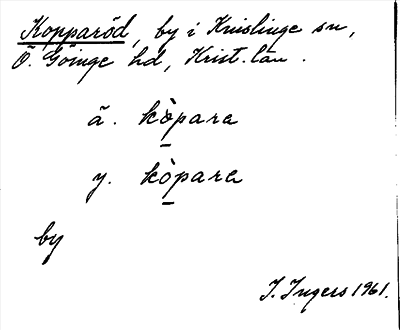 Kopparöd, by i Knislinge sn,
Ö. Göinge hd, Krist. län.
ä. kòpara
y. kòpara
by
I. Ingers 1961.